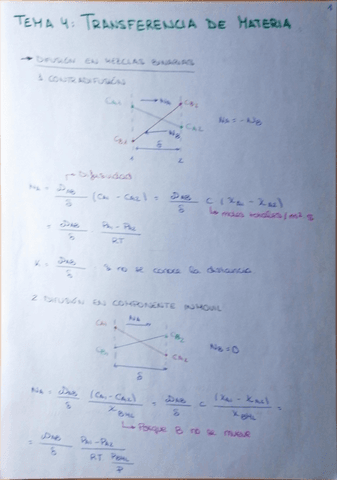 1
TEMA 4: TRANSFERENCIA DE MATERIA
→ DIFUSIÓN EN MEZCLAS BINARIAS
1. CONTRADIFUSIÓN
CA1 → NA CB2
NA = -NB
CB1 NB CA2
1 δ 2
Difusividad
NA = DAB/δ (CA1 - CA2) = DAB/δ C (XA1 - XA2)
↳ moles totales/m³
= DAB/δ · (PA1 - PA2)/RT
K = DAB/δ si no se conoce la distancia
2. DIFUSIÓN EN COMPONENTE INMÓVIL
NA
CA1 CB2
NB = 0
CB1 CA2
δ
NA = DAB/δ (CA1 - CA2)/XBML = DAB/δ C (XA1 - XA2)/XBML =
↳ Porque B no se mueve
= DAB/δ · (PA1 - PA2)/(RT PBML/P)